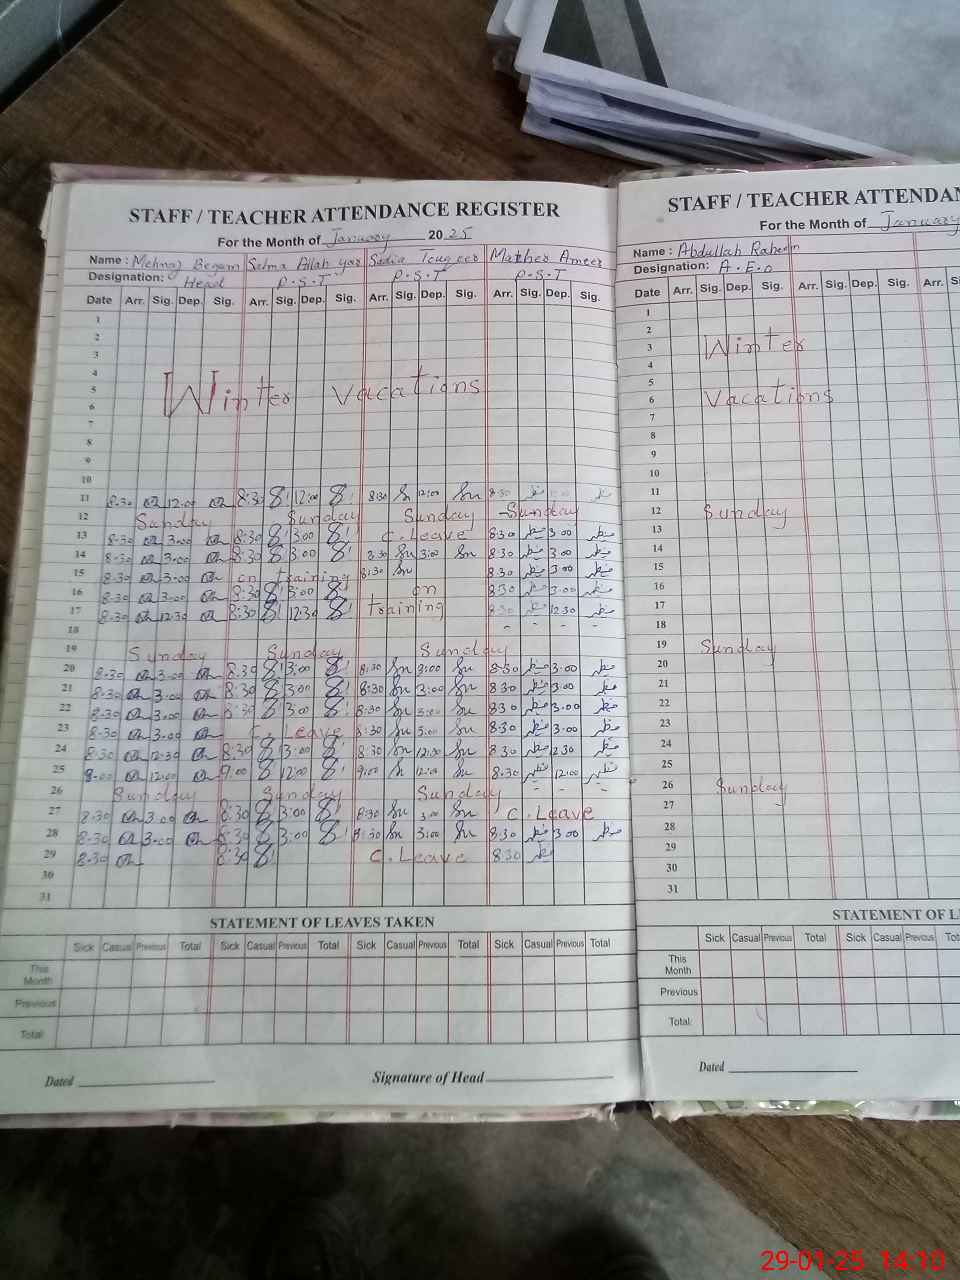 STAFF / TEACHER ATTENDANCE REGISTER
For the Month of January 2025
Name : Mehnaz Begam Salma Allah yar Sadia Touqeer Mazher Ameer
Designation: Head P.S.T P.S.T P.S.T
Date Arr. Sig. Dep. Sig. Arr. Sig. Dep. Sig. Arr. Sig. Dep. Sig. Arr. Sig. Dep. Sig.
1
2
3
4
5 Winter Vacations
6
7
8
9
10
11 8.30 12.00 8:30 12:00 8:30 12:00 8:30
12 Sunday Sunday Sunday Sunday
13 8.30 3.00 8:30 3:00 C. Leave 8:30 3.00
14 8.30 3.00 8:30 3:00 8:30 3:00 8:30 3.00
15 8.30 3.00 on training 8:30 8:30 3.00
16 8.30 3.00 8:30 3:00 on 8:30 3.00
17 8.30 12.30 8:30 12:30 training 8:30 12:30
18 - - -
19 Sunday Sunday Sunday
20 8.30 3.00 8:30 3:00 8:30 3:00 8:30 3.00
21 8.30 3.00 8:30 3:00 8:30 3:00 8:30 3.00
22 8.30 3.00 8:30 3:00 8:30 3:00 8:30 3.00
23 8.30 3.00 C. Leave 8:30 3:00 8:30 3.00
24 8.30 12.30 8:30 3:00 8:30 12:30 8:30 12:30
25 9.00 12.00 9:00 12:00 9:00 12:00 8:30 12:00
26 Sunday Sunday Sunday
27 8.30 3.00 8:30 3:00 8:30 3:00 C. Leave
28 8.30 3.00 8:30 3:00 8:30 3:00 8:30 3.00
29 8.30 8:30 C. Leave 8:30
30
31
STATEMENT OF LEAVES TAKEN
Sick Casual Previous Total Sick Casual Previous Total Sick Casual Previous Total Sick Casual Previous Total
This Month
Previous
Total
Dated Signature of Head
STAFF / TEACHER ATTENDAN
For the Month of January
Name : Abdullah Raheem
Designation: A.E.O
Date Arr. Sig. Dep. Sig. Arr. Sig. Dep. Sig. Arr.
1
2
3 Winter
4
5
6 Vacations
7
8
9
10
11
12 Sunday
13
14
15
16
17
18
19 Sunday
20
21
22
23
24
25
26 Sunday
27
28
29
30
31
STATEMENT OF L
Sick Casual Previous Total Sick Casual Previous
This Month
Previous
Total
Dated
29-01-25 14:10